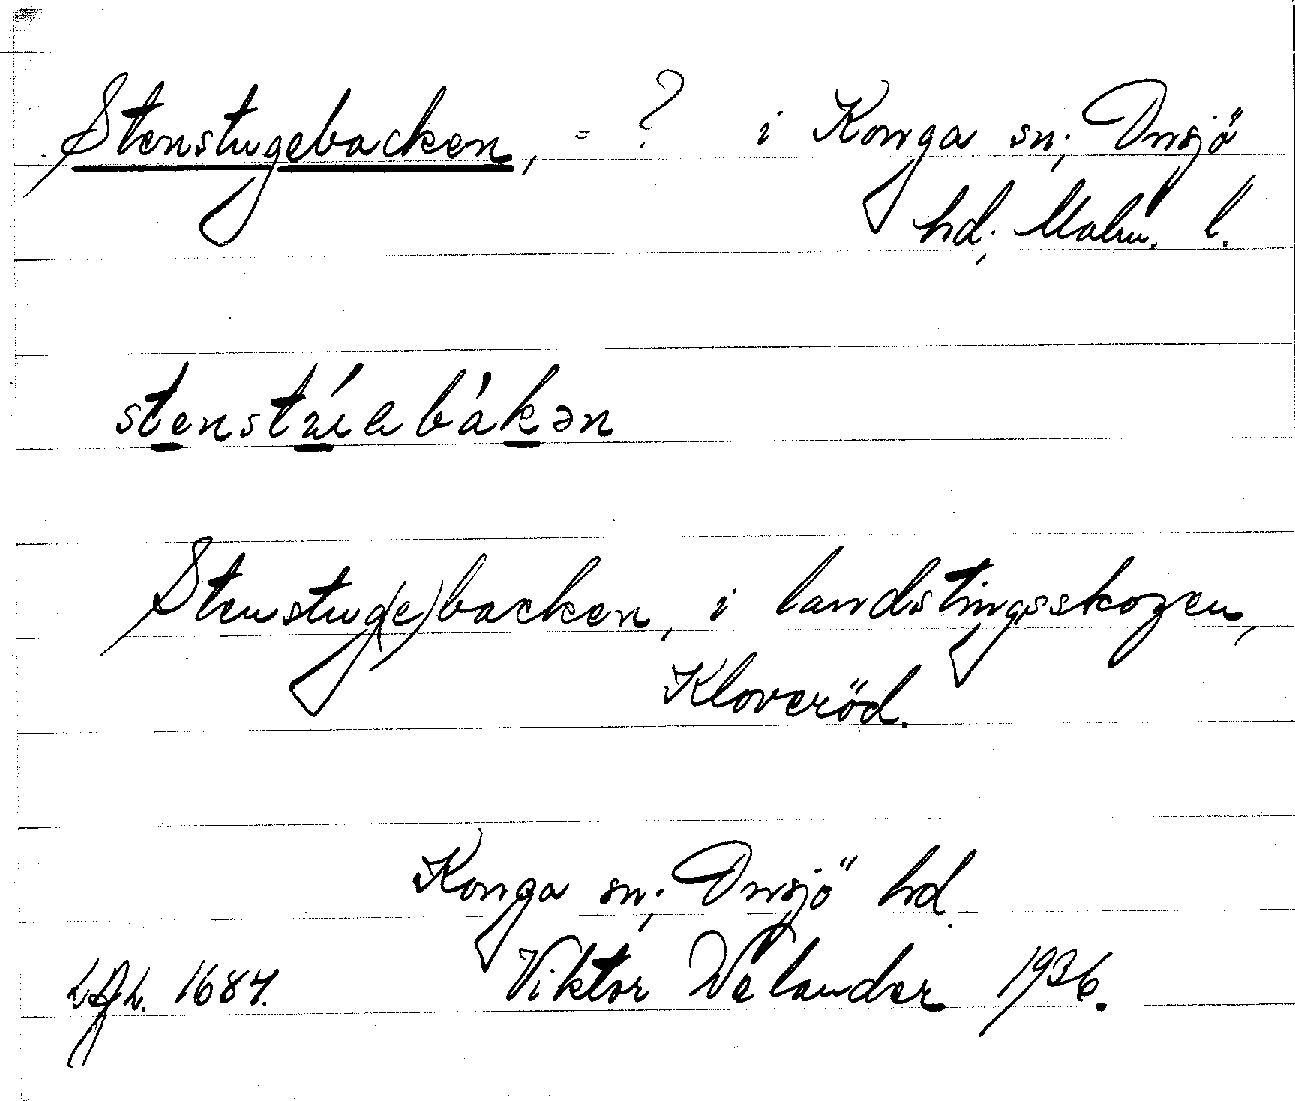 Stenstugebacken, = ? i Konga sn; Onsjö
hd; Malm. l.
stenstúebákən
Stenstug(e)backen, i landstingsskogen,
Kloveröd.
Konga sn; Onsjö hd.
1684. Viktor Welander 1936.